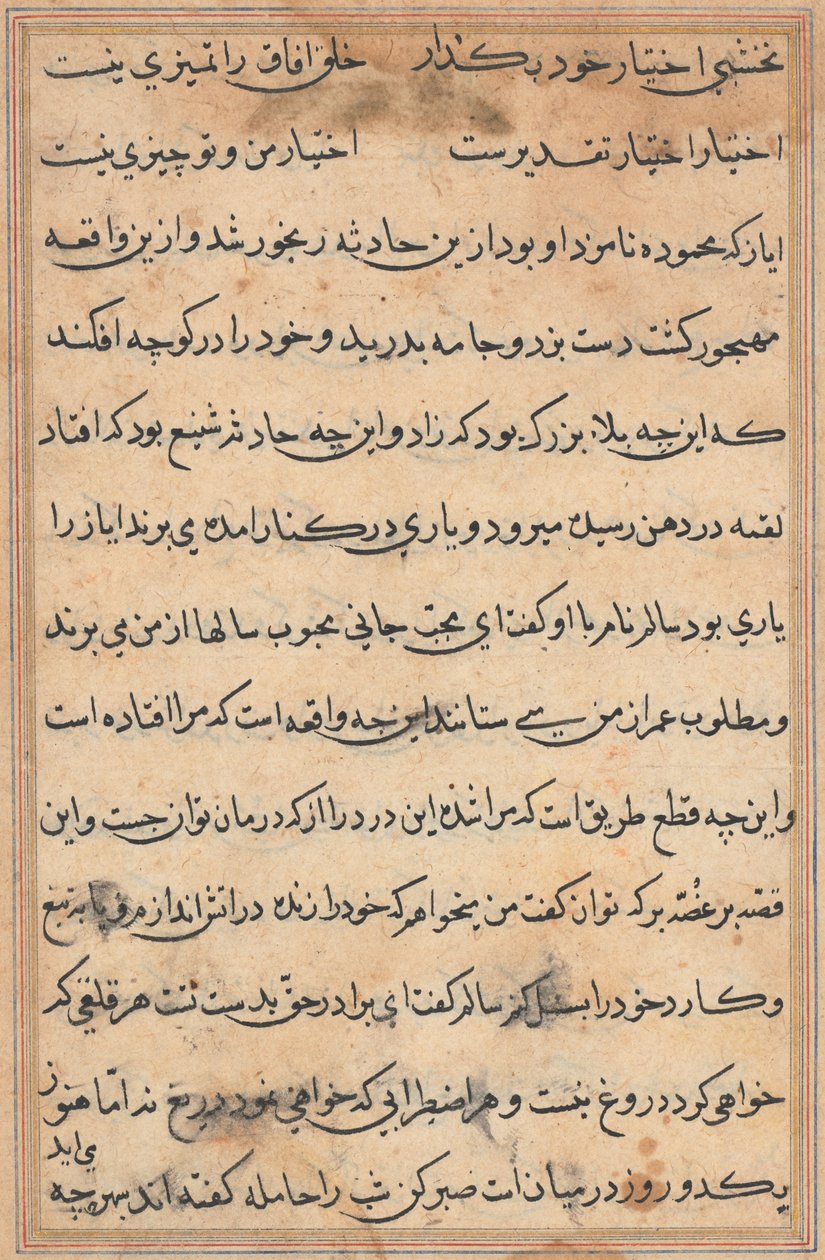 نخشبی اختیار خود بکذار خلق افاق را تمیزی نیست
اختیار اختیار تقدیرست اختیار من و تو چیزی نیست
ایاز که محموده نامزد او بود ازین حادثه رنجور شد و ازین واقعه
مهجور کشت دست بزد و جامه بدرید و خود را در کوچه افکند
که این چه بلاء بزرک بود که زاد و این چه حادثه شنیع بود که افتاد
لقمه در دهن رسیده میرود و یاری در کنار امده می برند ایاز را
یاری بود سالم نام با او کفت ای محب جانی محبوب سالها از من می برند
و مطلوب عمر از من می ستانند این چه واقعه است که مرا افتاده است
و این چه قطع طریق است که مرا شده این درد را از که درمان توان جست و این
قصه بر غُصّه بر که توان کفت من میخواهم که خود را زنده در اتش اندازم و یا به تیغ
و کارد خود را بسمل کنم سالم کفت ای برادر حقّ بدست تست هر قلقی که
خواهی کرد دروغ نیست و هر اضطرابی که خواهی نمود دریغ نه امّا هنوز
یکدو روز در میان است صبر کن شب را حامله کفته اند بهر چه
می اید